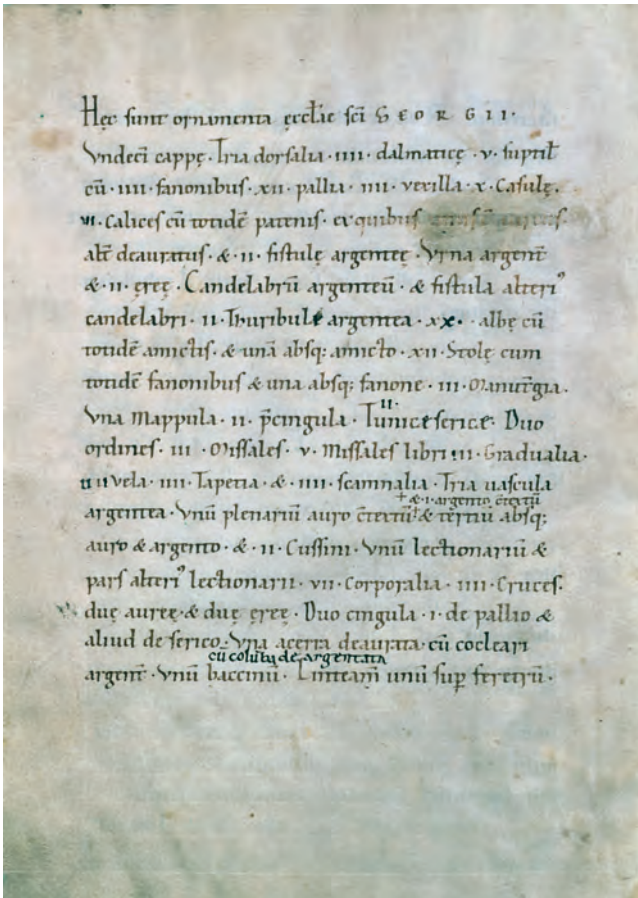 Hęc sunt ornamenta ęccl̄ie sc̄i GEORGII·
Vndeci cappę· Tria dorsalia· IIII· dalmaticę· v· suptil̄
cū· IIII· fanonibus· XII· pallia· IIII· vexilla· X· Casulę·
VI· Calices cū totidē patenis· ex quibus
alt̄ deauratus· & · II· fistulę argenteę· Vrna argent̄
& · II· ęreę· Candelabrū argenteū· & fistula alteriꝰ
candelabri· II· Thuribule argentea· XX· albę cū
totidē amictis· & unā absq; amicto· XII· Stolę cum
totidē fanonibus & una absq; fanone· III· Manut̄gia·
Vna Mappula· II· p̄cingula· II· Tunicę sericę· Duo
ordines· III· Missales· V· Missales libri III· Gradualia·
II vela· IIII· Tapetia· & · IIII· scamnalia· Tria uascula
+ & · I· argento c̄textū
argentea· Vnū plenariū auro c̄textū + & tertiū absq;
auro & argento· & · II· Cussini· Vnū lectionariū &
pars alteriꝰ lectionarii· VII· Corporalia· IIII· Cruces·
duę aureę· & duę ęreę· Duo cingula· I· de pallio &
aliud de serico· Vna acerra deaurata· cū cocleari
cū coluba de argentata
argent̄· Vnū baccinū· Linteam̄ unū sup̄ feretrū·